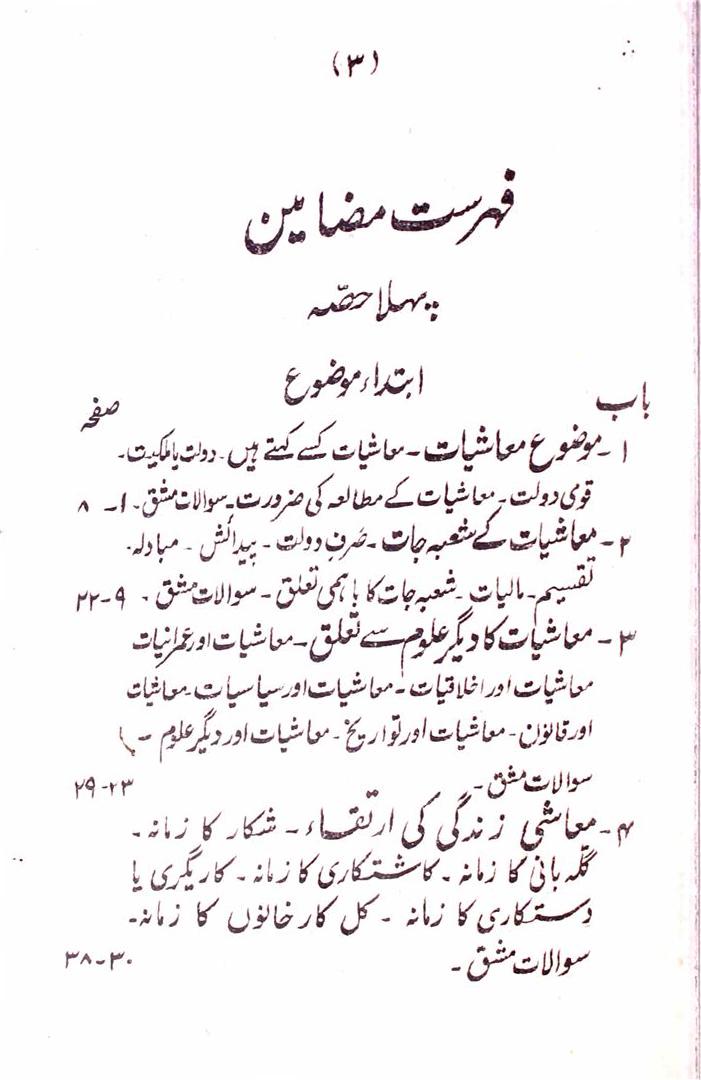 (۳)
فہرست مضامین
پہلا حصّہ
ابتداء موضوع
باب
صفحہ
۱۔ موضوع معاشیات ۔ معاشیات کسے کہتے ہیں ۔ دولت یا ملکیت ۔
قومی دولت ۔ معاشیات کے مطالعہ کی ضرورت ۔ سوالات مشق ۔ ۱۔ ۸
۲۔ معاشیات کے شعبہ جات ۔ صَرفِ دولت ۔ پیدائش ۔ مبادلہ ۔
تقسیم ۔ مالیات ۔ شعبہ جات کا باہمی تعلق ۔ سوالات مشق ۔ ۹۔۲۲
۳۔ معاشیات کا دیگر علوم سے تعلق ۔ معاشیات اور عمرانیات
معاشیات اور اخلاقیات ۔ معاشیات اور سیاسیات ۔ معاشیات
اور قانون ۔ معاشیات اور تواریخ ۔ معاشیات اور دیگر علوم ۔
سوالات مشق ۔ ۲۳۔۲۹
۴۔ معاشی زندگی کی ارتقاء ۔ شکار کا زمانہ ۔
گلّہ بانی کا زمانہ ۔ کاشتکاری کا زمانہ ۔ کاریگری یا
دستکاری کا زمانہ ۔ کل کارخانوں کا زمانہ ۔
سوالات مشق ۔ ۳۰۔۳۸